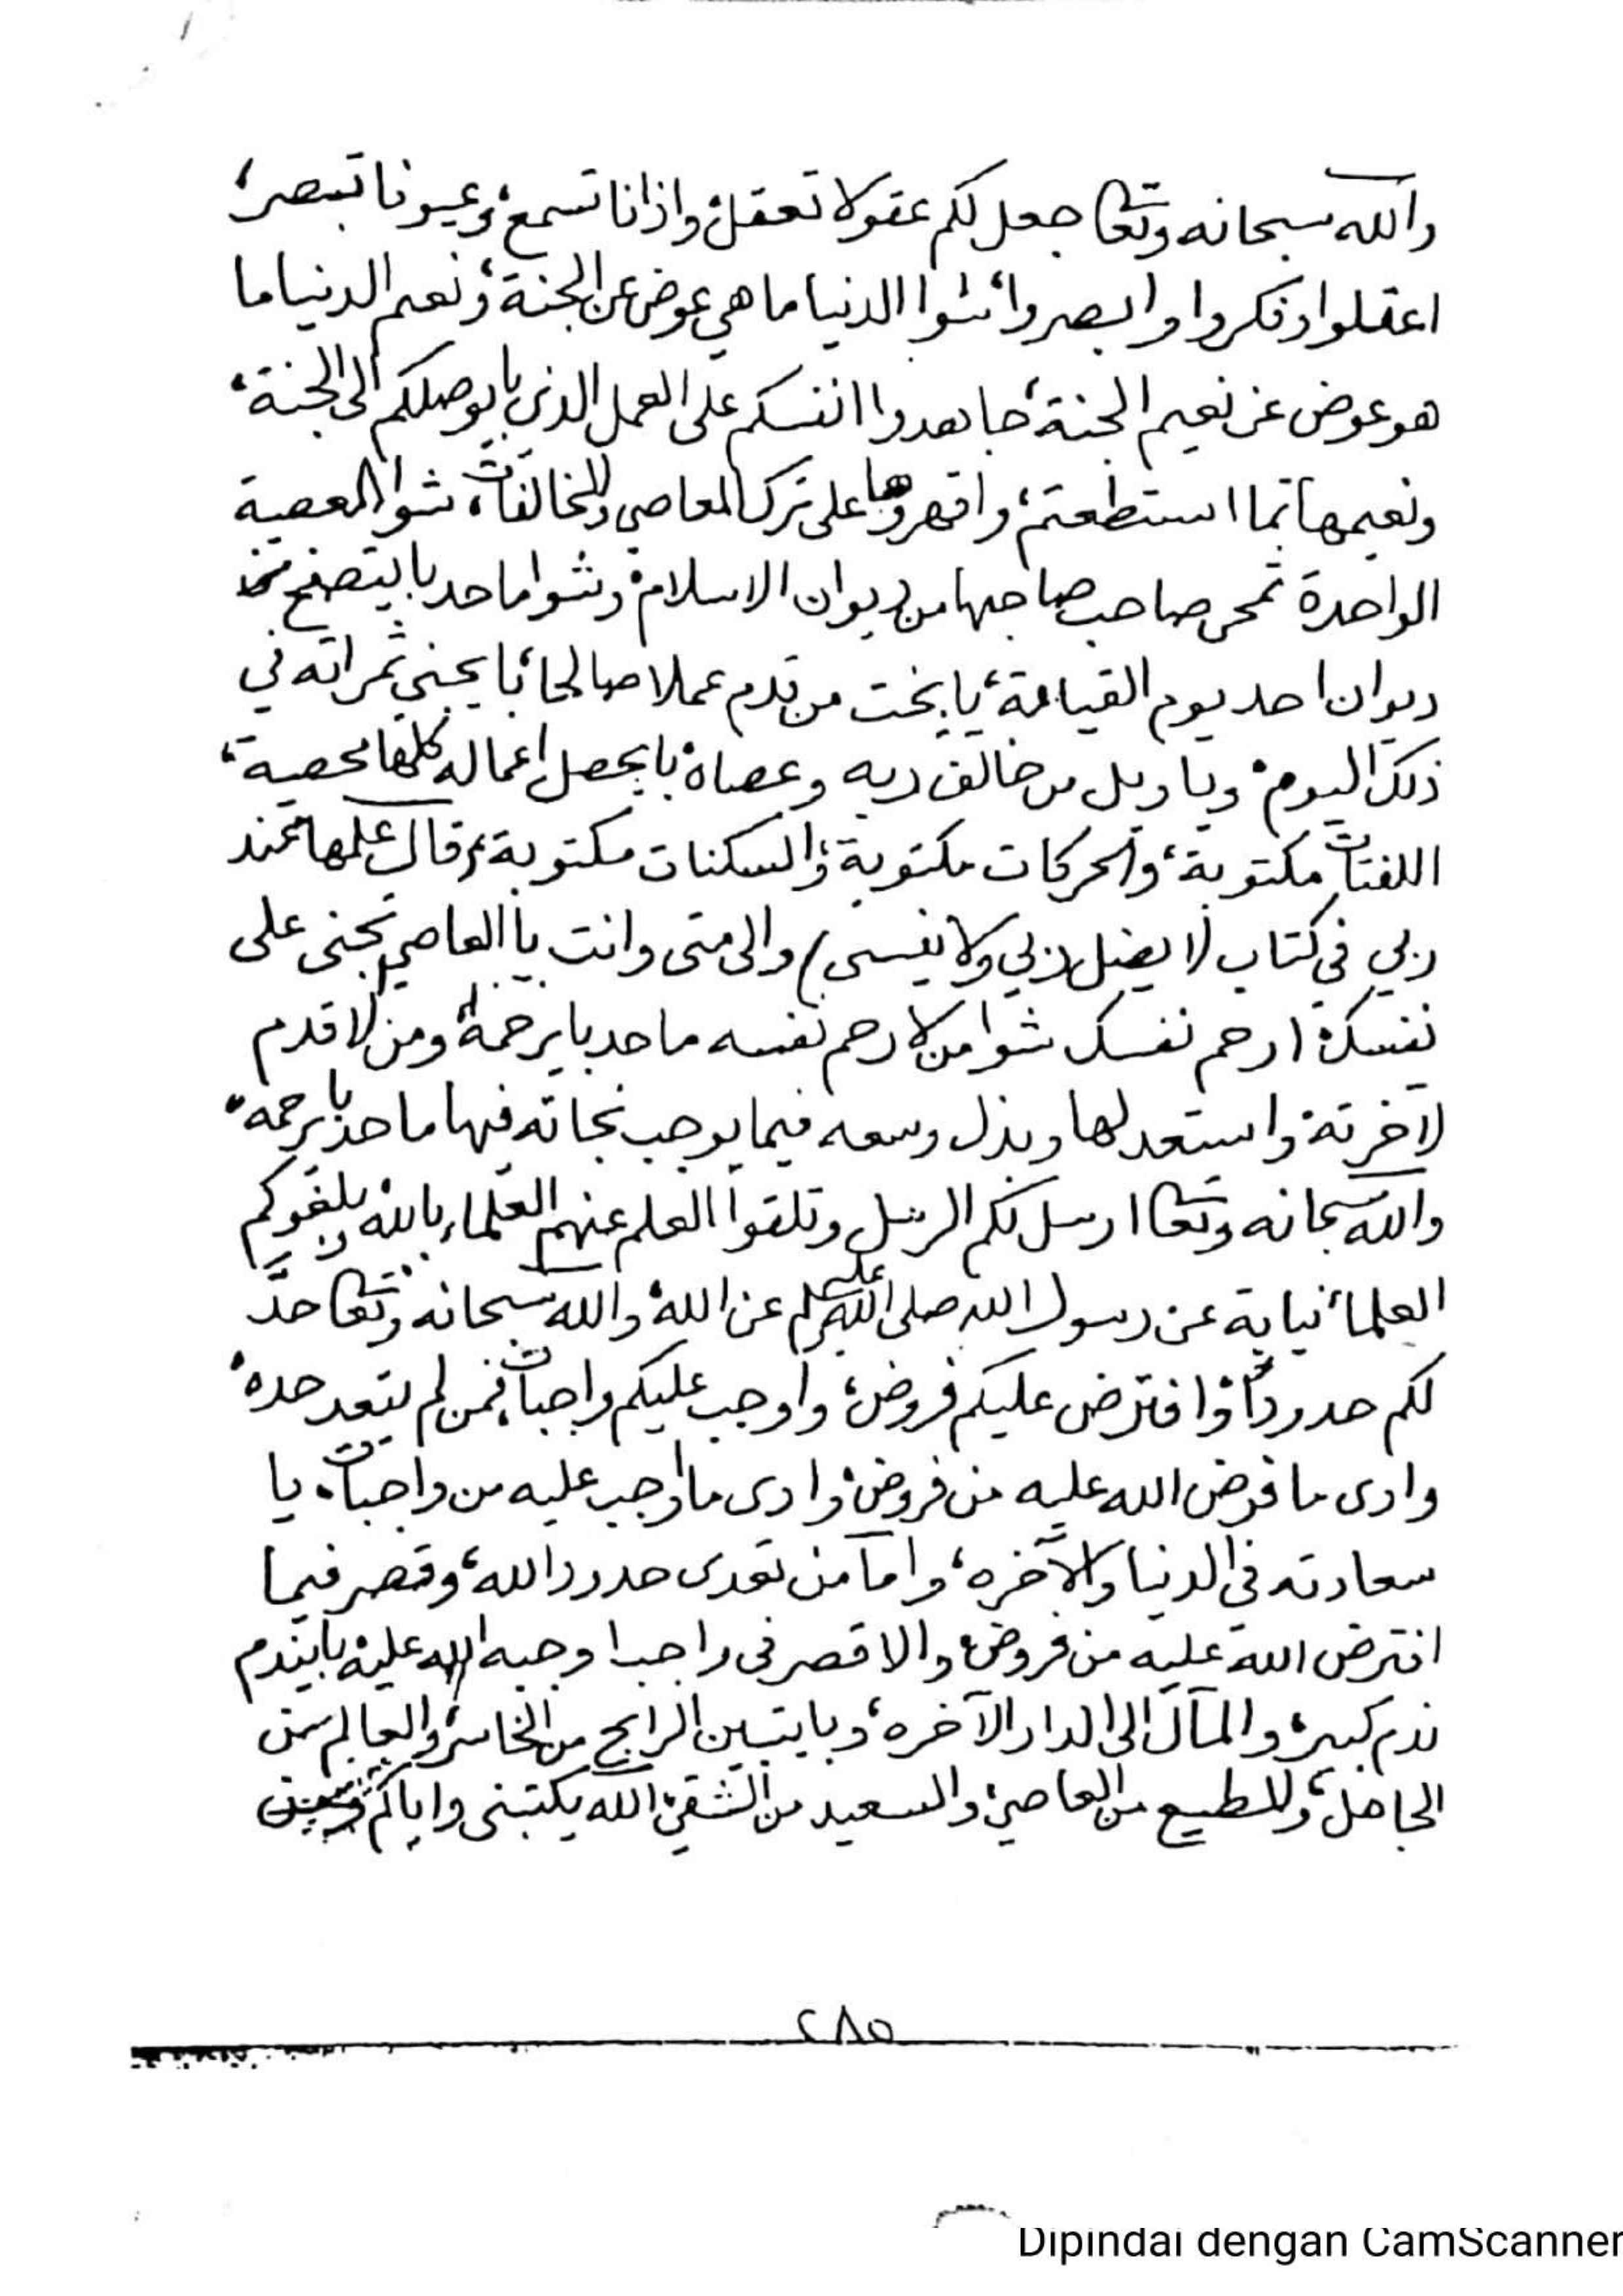 والله سبحانه وتعا جعل لكم عقولا تعقل، واذانا تسمع، وعيونا تبصر،
اعقلوا وفكروا وابصروا، شوا الدنيا ما هي عوض عن الجنة، ونعيم الدنيا ما
هو عوض عن نعيم الجنة، جاهدوا انفسكم على العمل الذي با يوصلكم الى الجنة،
ونعيمها بما استطعتم، واقهروها على ترك المعاصي والمخالفات، شوا المعصية
الواحدة تمحي صاحب صاحبها من ديوان الاسلام، وشوا ما حد با يتصفح
ديوان احد يوم القيامة، يا بخت من قدم عملا صالحا، با يجني ثمراته في
ذلك اليوم، ويا ويل من خالف ربه وعصاه، با يحصل اعماله كلها محصية،
اللفتات مكتوبة، والحركات مكتوبة، والسكنات مكتوبة، قال علمها عند
ربي في كتاب (لا يضل ربي ولا ينسى) والى متى وانت يا العاصي تجني على
نفسك، ارحم نفسك شوا من لا رحم نفسه ما حد با يرحمه، ومن لا قدم
لآخرته، واستعد لها وبذل وسعه فيما يوجب نجاته فيها ما حد با يرحمه،
والله سبحانه وتعا ارسل لكم الرسل وتلقوا العلم عنهم العلماء بالله، يلغوكم
العلماء نيابة عن رسول الله صلى الله عليه وسلم عن الله، والله سبحانه وتعا حدَّ
لكم حدوداً، وافترض عليكم فروض، واوجب عليكم واجبات، فمن لم يتعد حده،
وادى ما فرض الله عليه من فروض، وادى ما اوجب عليه من واجبات، يا
سعادته في الدنيا والآخره، واما من تعدى حدود الله، وقصر فيما
افترض الله عليه من فروض، والا قصر في واجب اوجبه الله عليه، با يندم
ندم كبير، والمآل الى الدار الآخره، وبا يتبين الرابح من الخاسر، والعالم من
الجاهل، والمطيع من العاصي، والسعيد من الشقي، الله يكتبني واياكم
٢٨٥
Dipindai dengan CamScanner